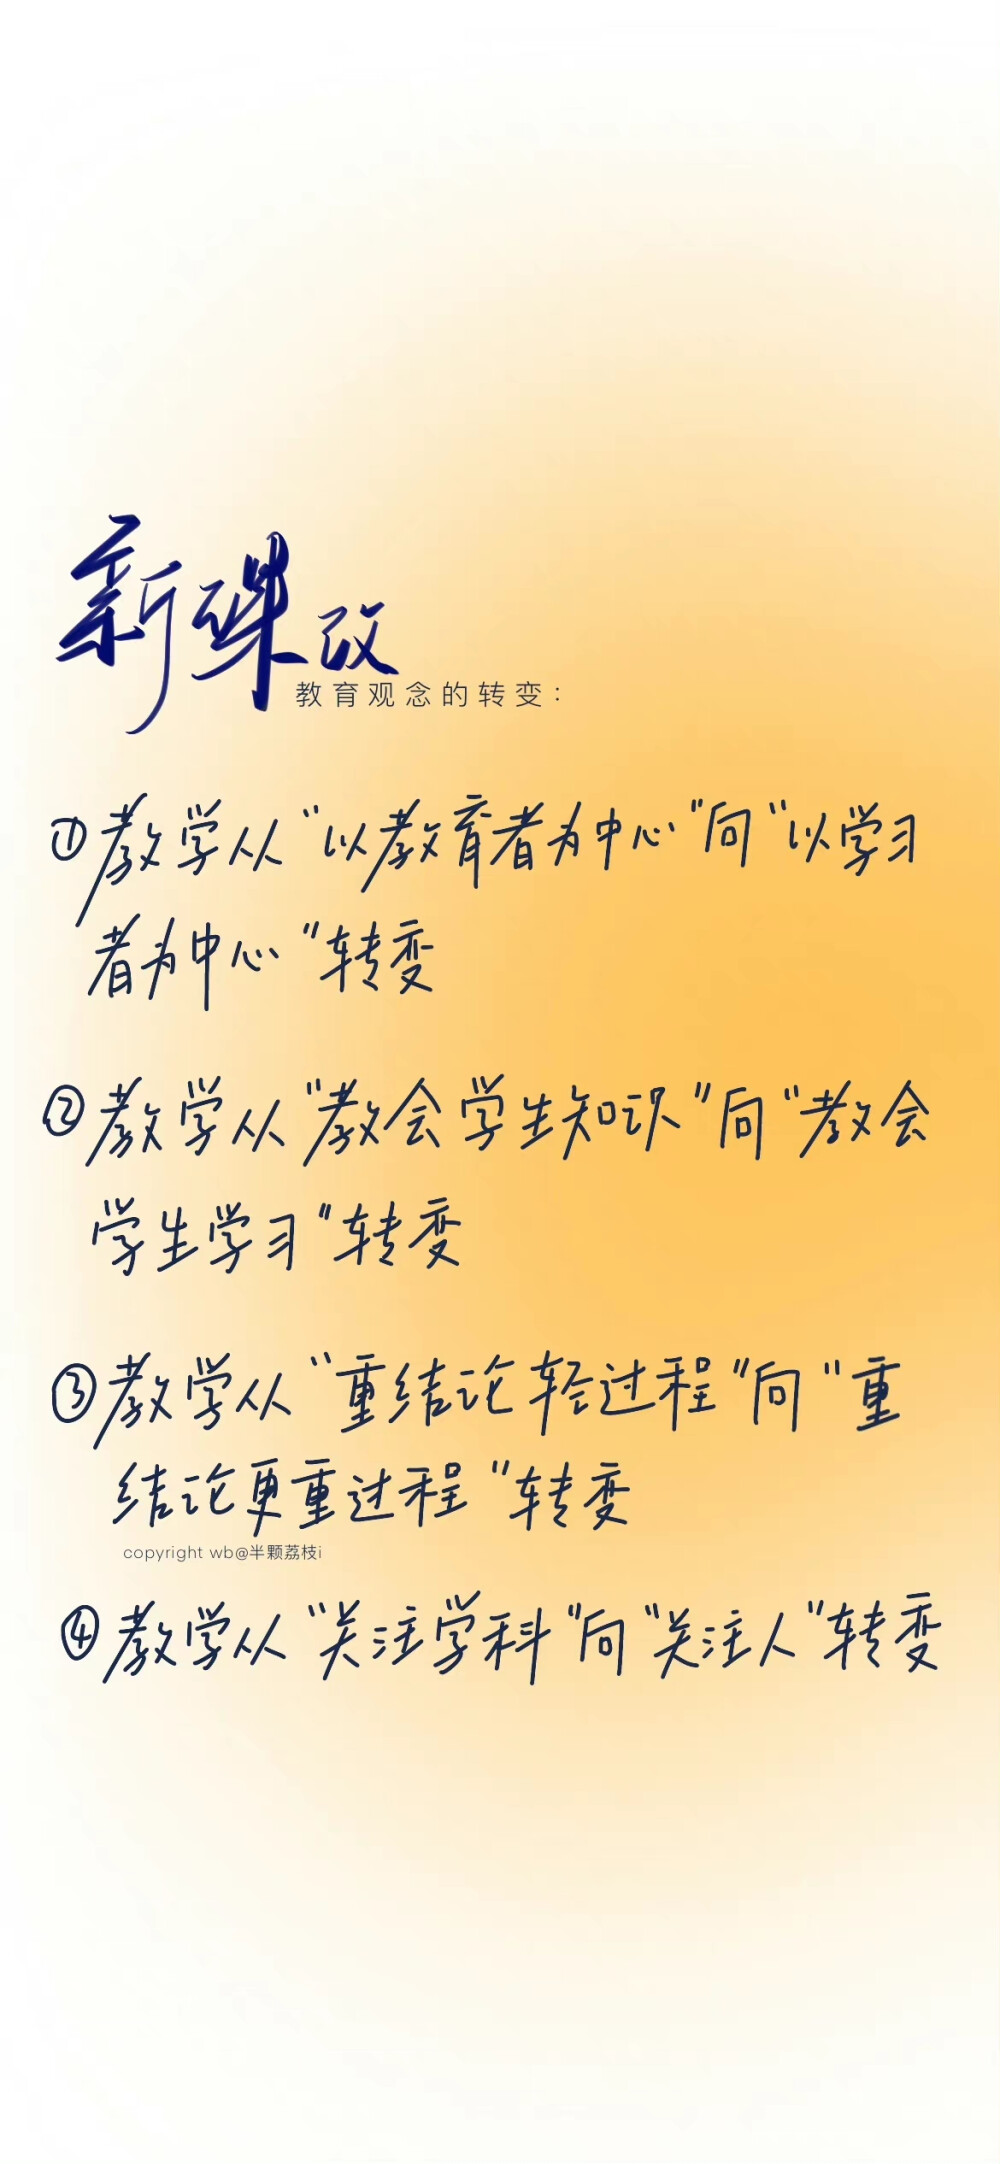 新课改
教育观念的转变：
①教学从“以教育者为中心”向“以学习
者为中心”转变
②教学从“教会学生知识”向“教会
学生学习”转变
③教学从“重结论轻过程”向“重
结论更重过程”转变
copyright wb@半颗荔枝i
④教学从“关注学科”向“关注人”转变